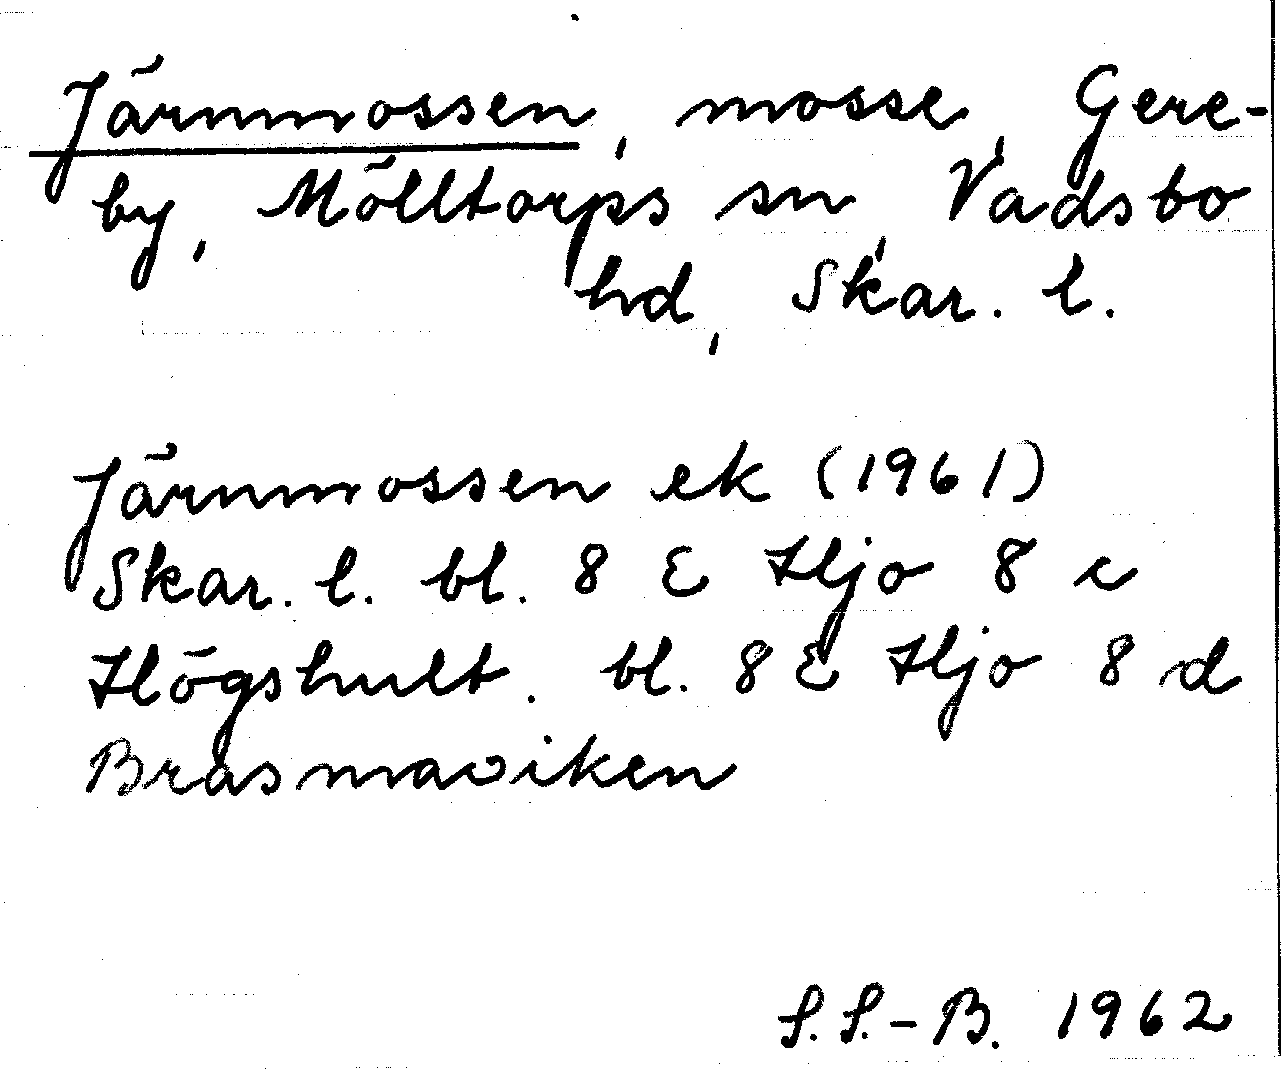 Järnmossen, mosse, Gere-
by, Mölltorps sn, Vadsbo
hd, Skar. l.
Järnmossen ek (1961)
Skar. l. bl. 8 E Hjo 8 c
Högshult. bl. 8 E Hjo 8 d
Brasmaviken
S. S.-B. 1962